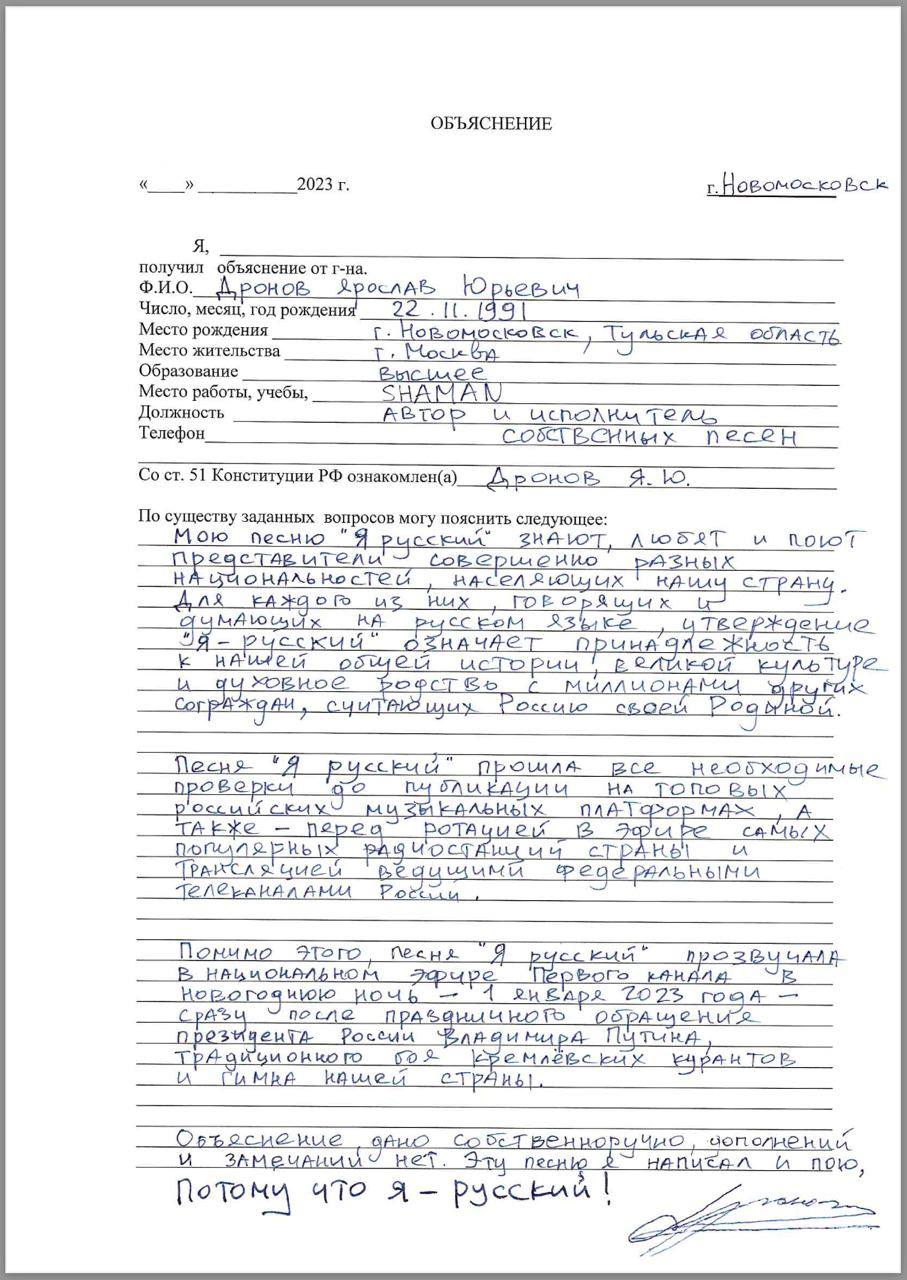 ОБЪЯСНЕНИЕ
«____» ___________2023 г. г. Новомосковск
Я,
получил объяснение от г-на.
Ф.И.О. Дронов Ярослав Юрьевич
Число, месяц, год рождения 22.11.1991
Место рождения г. Новомосковск, Тульская область
Место жительства г. Москва
Образование высшее
Место работы, учебы, SHAMAN
Должность автор и исполнитель
Телефон собственных песен
Со ст. 51 Конституции РФ ознакомлен(а) Дронов Я.Ю.
По существу заданных вопросов могу пояснить следующее:
Мою песню "Я русский" знают, любят и поют
представители совершенно разных
национальностей, населяющих нашу страну.
Для каждого из них, говорящих и
думающих на русском языке, утверждение
"Я - русский" означает принадлежность
к нашей общей истории, великой культуре
и духовное родство с миллионами других
сограждан, считающих Россию своей Родиной.
Песня "Я русский" прошла все необходимые
проверки до публикации на топовых
российских музыкальных платформах, а
также – перед ротацией в эфире самых
популярных радиостанций страны и
трансляцией ведущими федеральными
телеканалами России.
Помимо этого, песня "Я русский" прозвучала
в национальном эфире Первого канала в
новогоднюю ночь – 1 января 2023 года –
сразу после праздничного обращения
президента России Владимира Путина,
традиционного боя кремлёвских курантов
и гимна нашей страны.
Объяснение дано собственноручно, дополнений
и замечаний нет. Эту песню я написал и пою,
потому что я – русский!